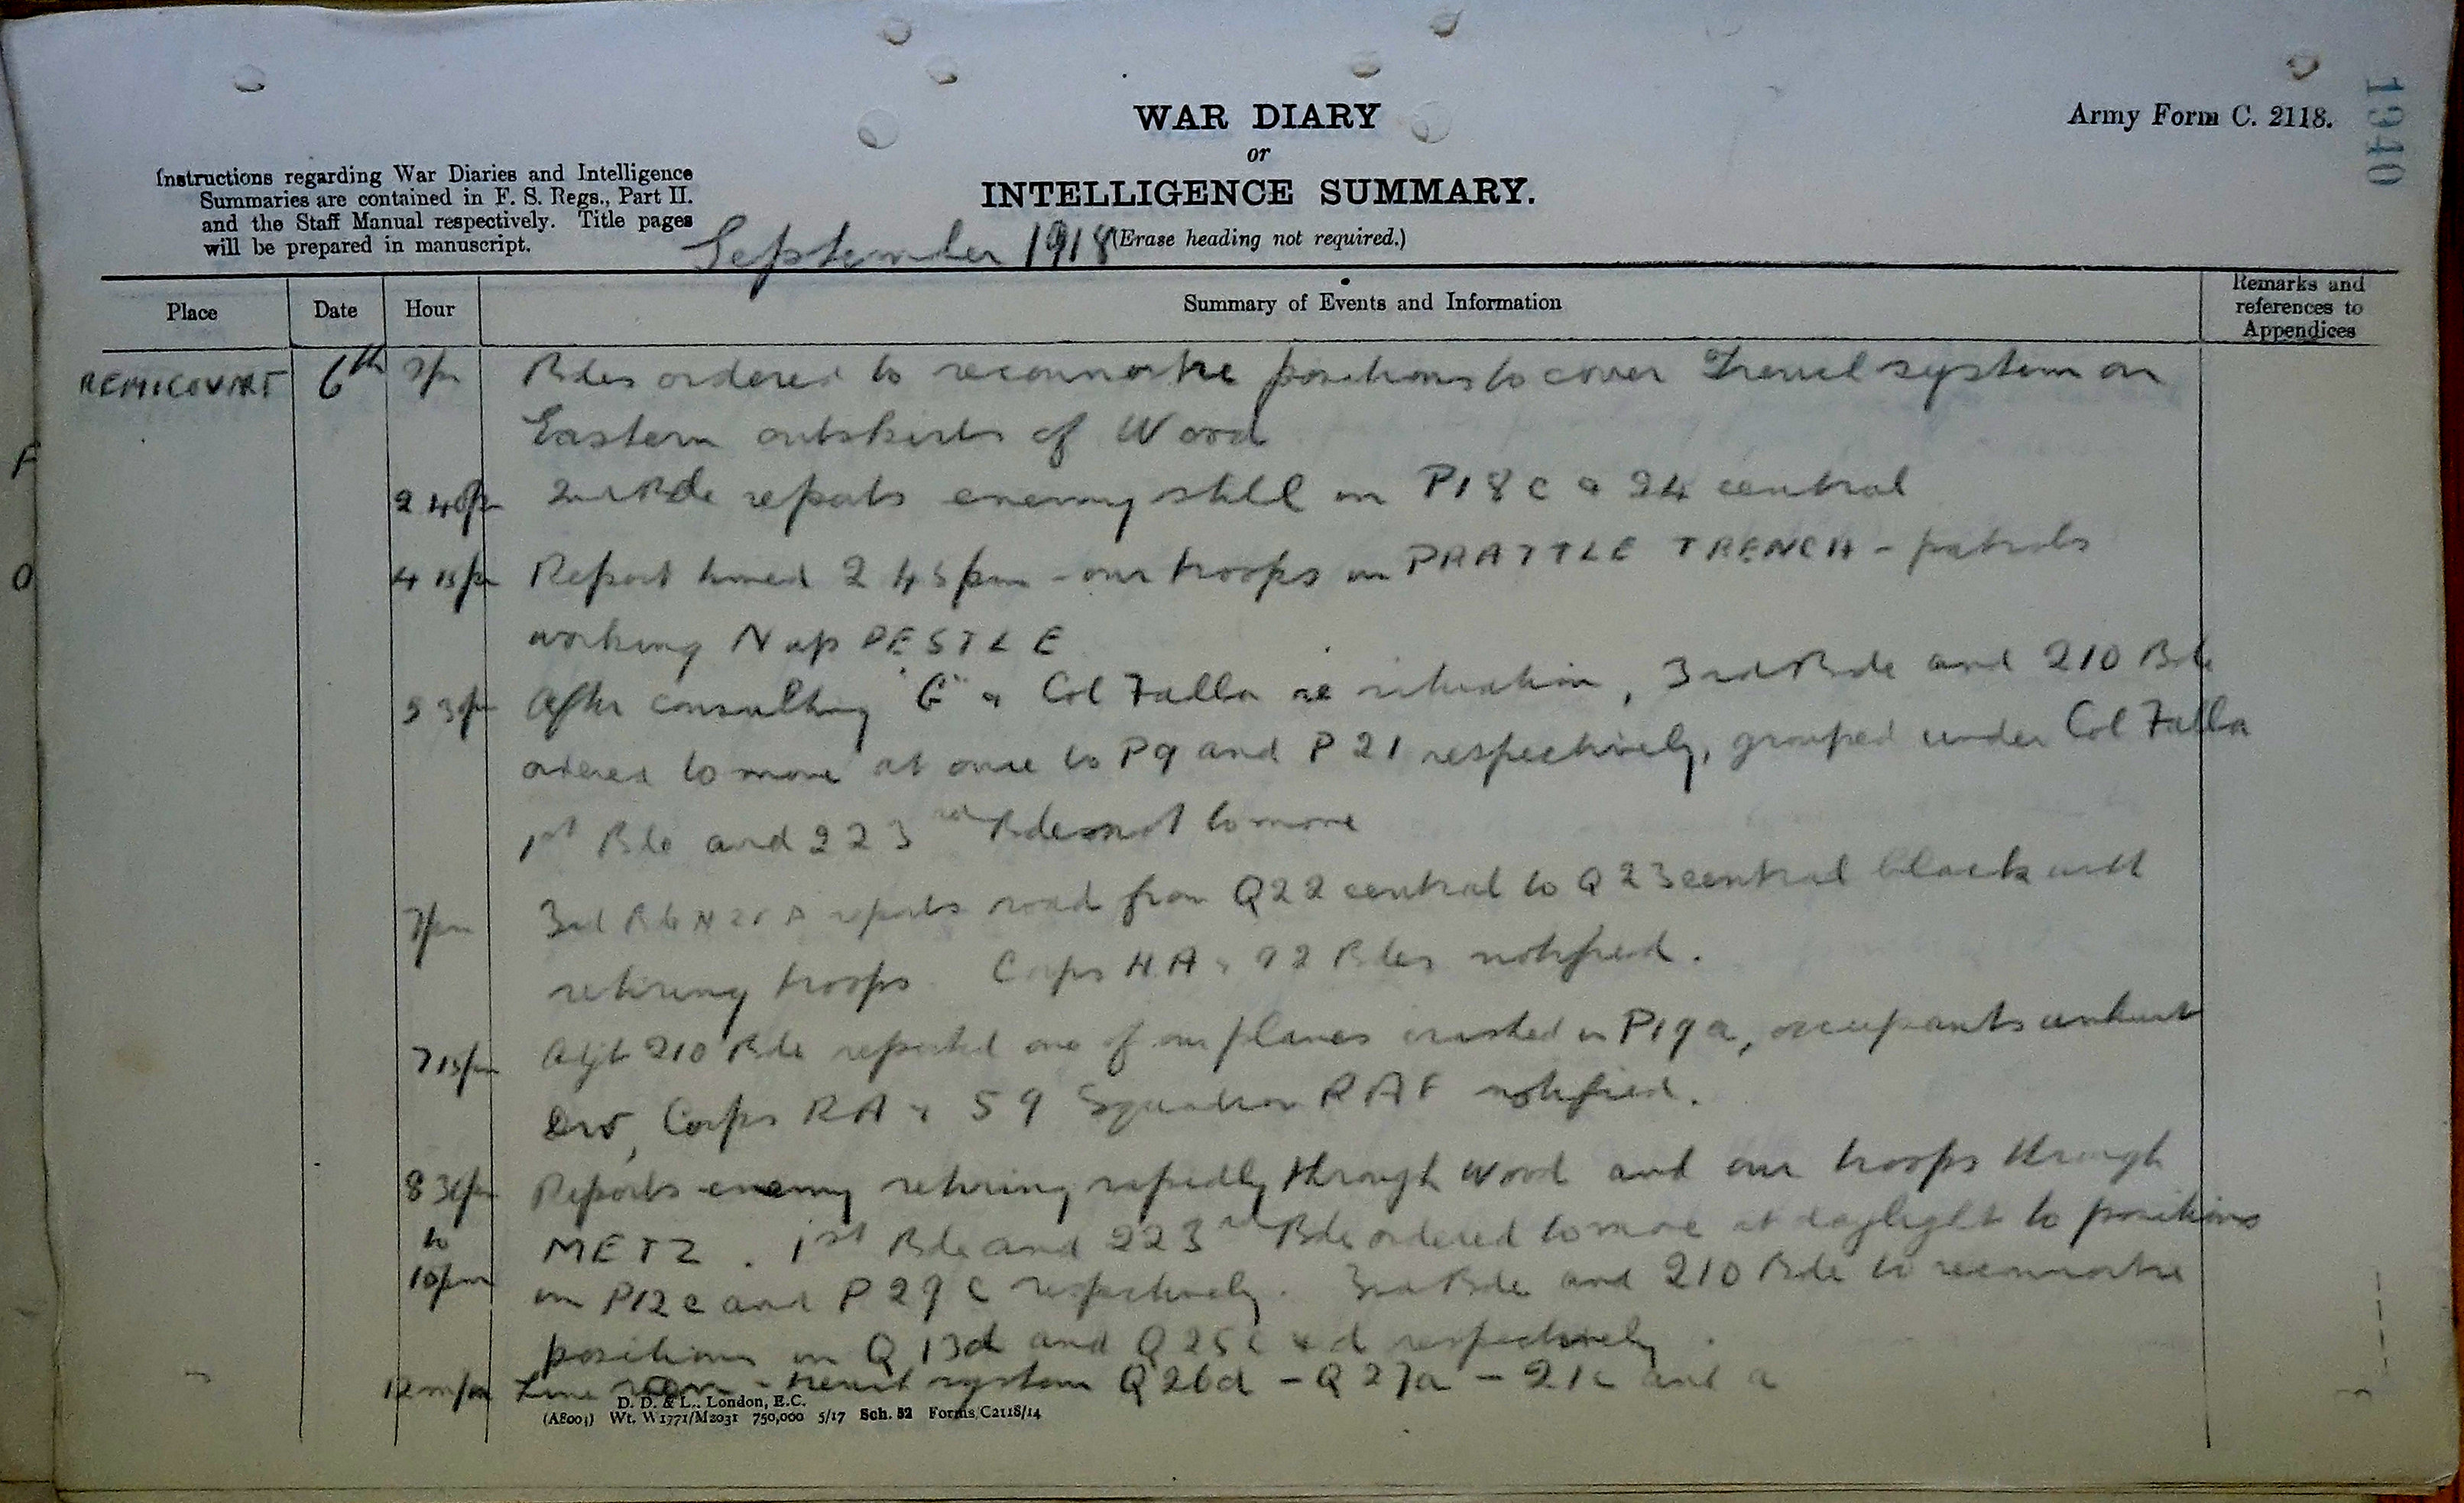 WAR DIARY
or
INTELLIGENCE SUMMARY.
(Erase heading not required.)
Army Form C. 2118.
1940
Instructions regarding War Diaries and Intelligence
Summaries are contained in F. S. Regs., Part II.
and the Staff Manual respectively. Title pages
will be prepared in manuscript.
September 1918
Place Date Hour Summary of Events and Information Remarks and references to Appendices
REMICOURT 6th 2pm Bdes ordered to reconnoitre positions to cover Trench system on
Eastern outskirts of Wood
2 40pm 2nd Bde reports enemy still in P18c & 24 central
4 15pm Report timed 2 45pm - our troops in PRATTLE TRENCH - patrols
working N up PESTLE
5 30pm After consulting "G" & Col Falla re situation, 3rd Bde and 210 Bde
ordered to move at once to P9 and P21 respectively, grouped under Col Falla
1st Bde and 223rd Bde not to move
7pm 3rd Bde NZFA reports road from Q22 central to Q23 central black with
retiring troops. Corps HA & 92 Bdes notified.
7 15pm Adjt 210 Bde reported one of our planes crashed in P19a, occupants unhurt
Div, Corps RA & 59 Squadron RAF notified.
8 30pm Reports enemy retiring rapidly through Wood and our troops through
to METZ. 1st Bde and 223rd Bde ordered to move at daylight to positions
10pm in P12c and P29c respectively. 3rd Bde and 210 Bde to reconnoitre
positions in Q13d and Q25c & d respectively.
12 mn Line trench system Q26d - Q27a - 21c and a
D. D. & L., London, E.C.
(A8001) Wt. W1771/M2031 750,000 5/17 Sch. 52 Forms/C2118/14